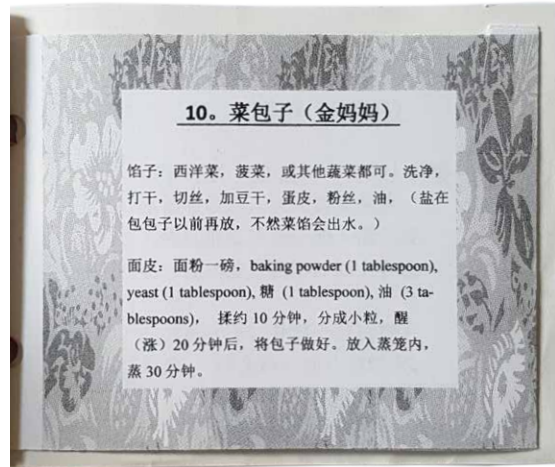 10。菜包子（金妈妈）
馅子：西洋菜，菠菜，或其他蔬菜都可。洗净，
打干，切丝，加豆干，蛋皮，粉丝，油，（盐在
包包子以前再放，不然菜馅会出水。）
面皮：面粉一磅，baking powder (1 tablespoon),
yeast (1 tablespoon), 糖 (1 tablespoon), 油 (3 ta-
blespoons)， 揉约 10 分钟，分成小粒，醒
（涨）20 分钟后，将包子做好。放入蒸笼内，
蒸 30 分钟。